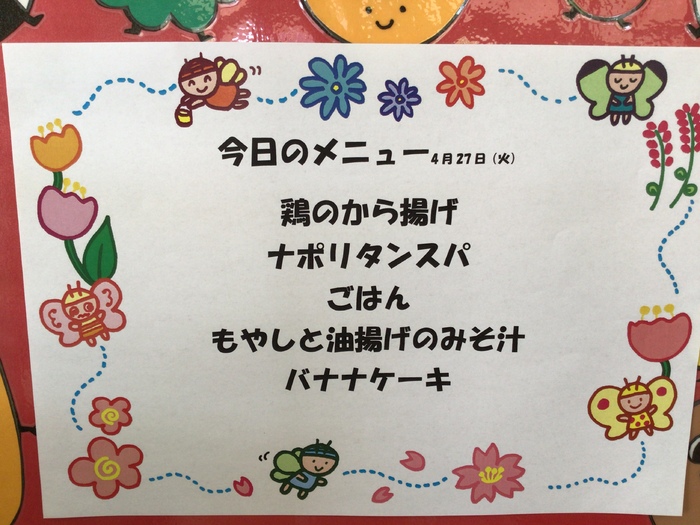 今日のメニュー4月27日(火)
鶏のから揚げ
ナポリタンスパ
ごはん
もやしと油揚げのみそ汁
バナナケーキ